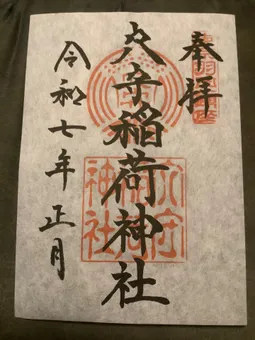 奉拝
穴守稲荷神社
令和七年正月
穴守
稲荷
神社